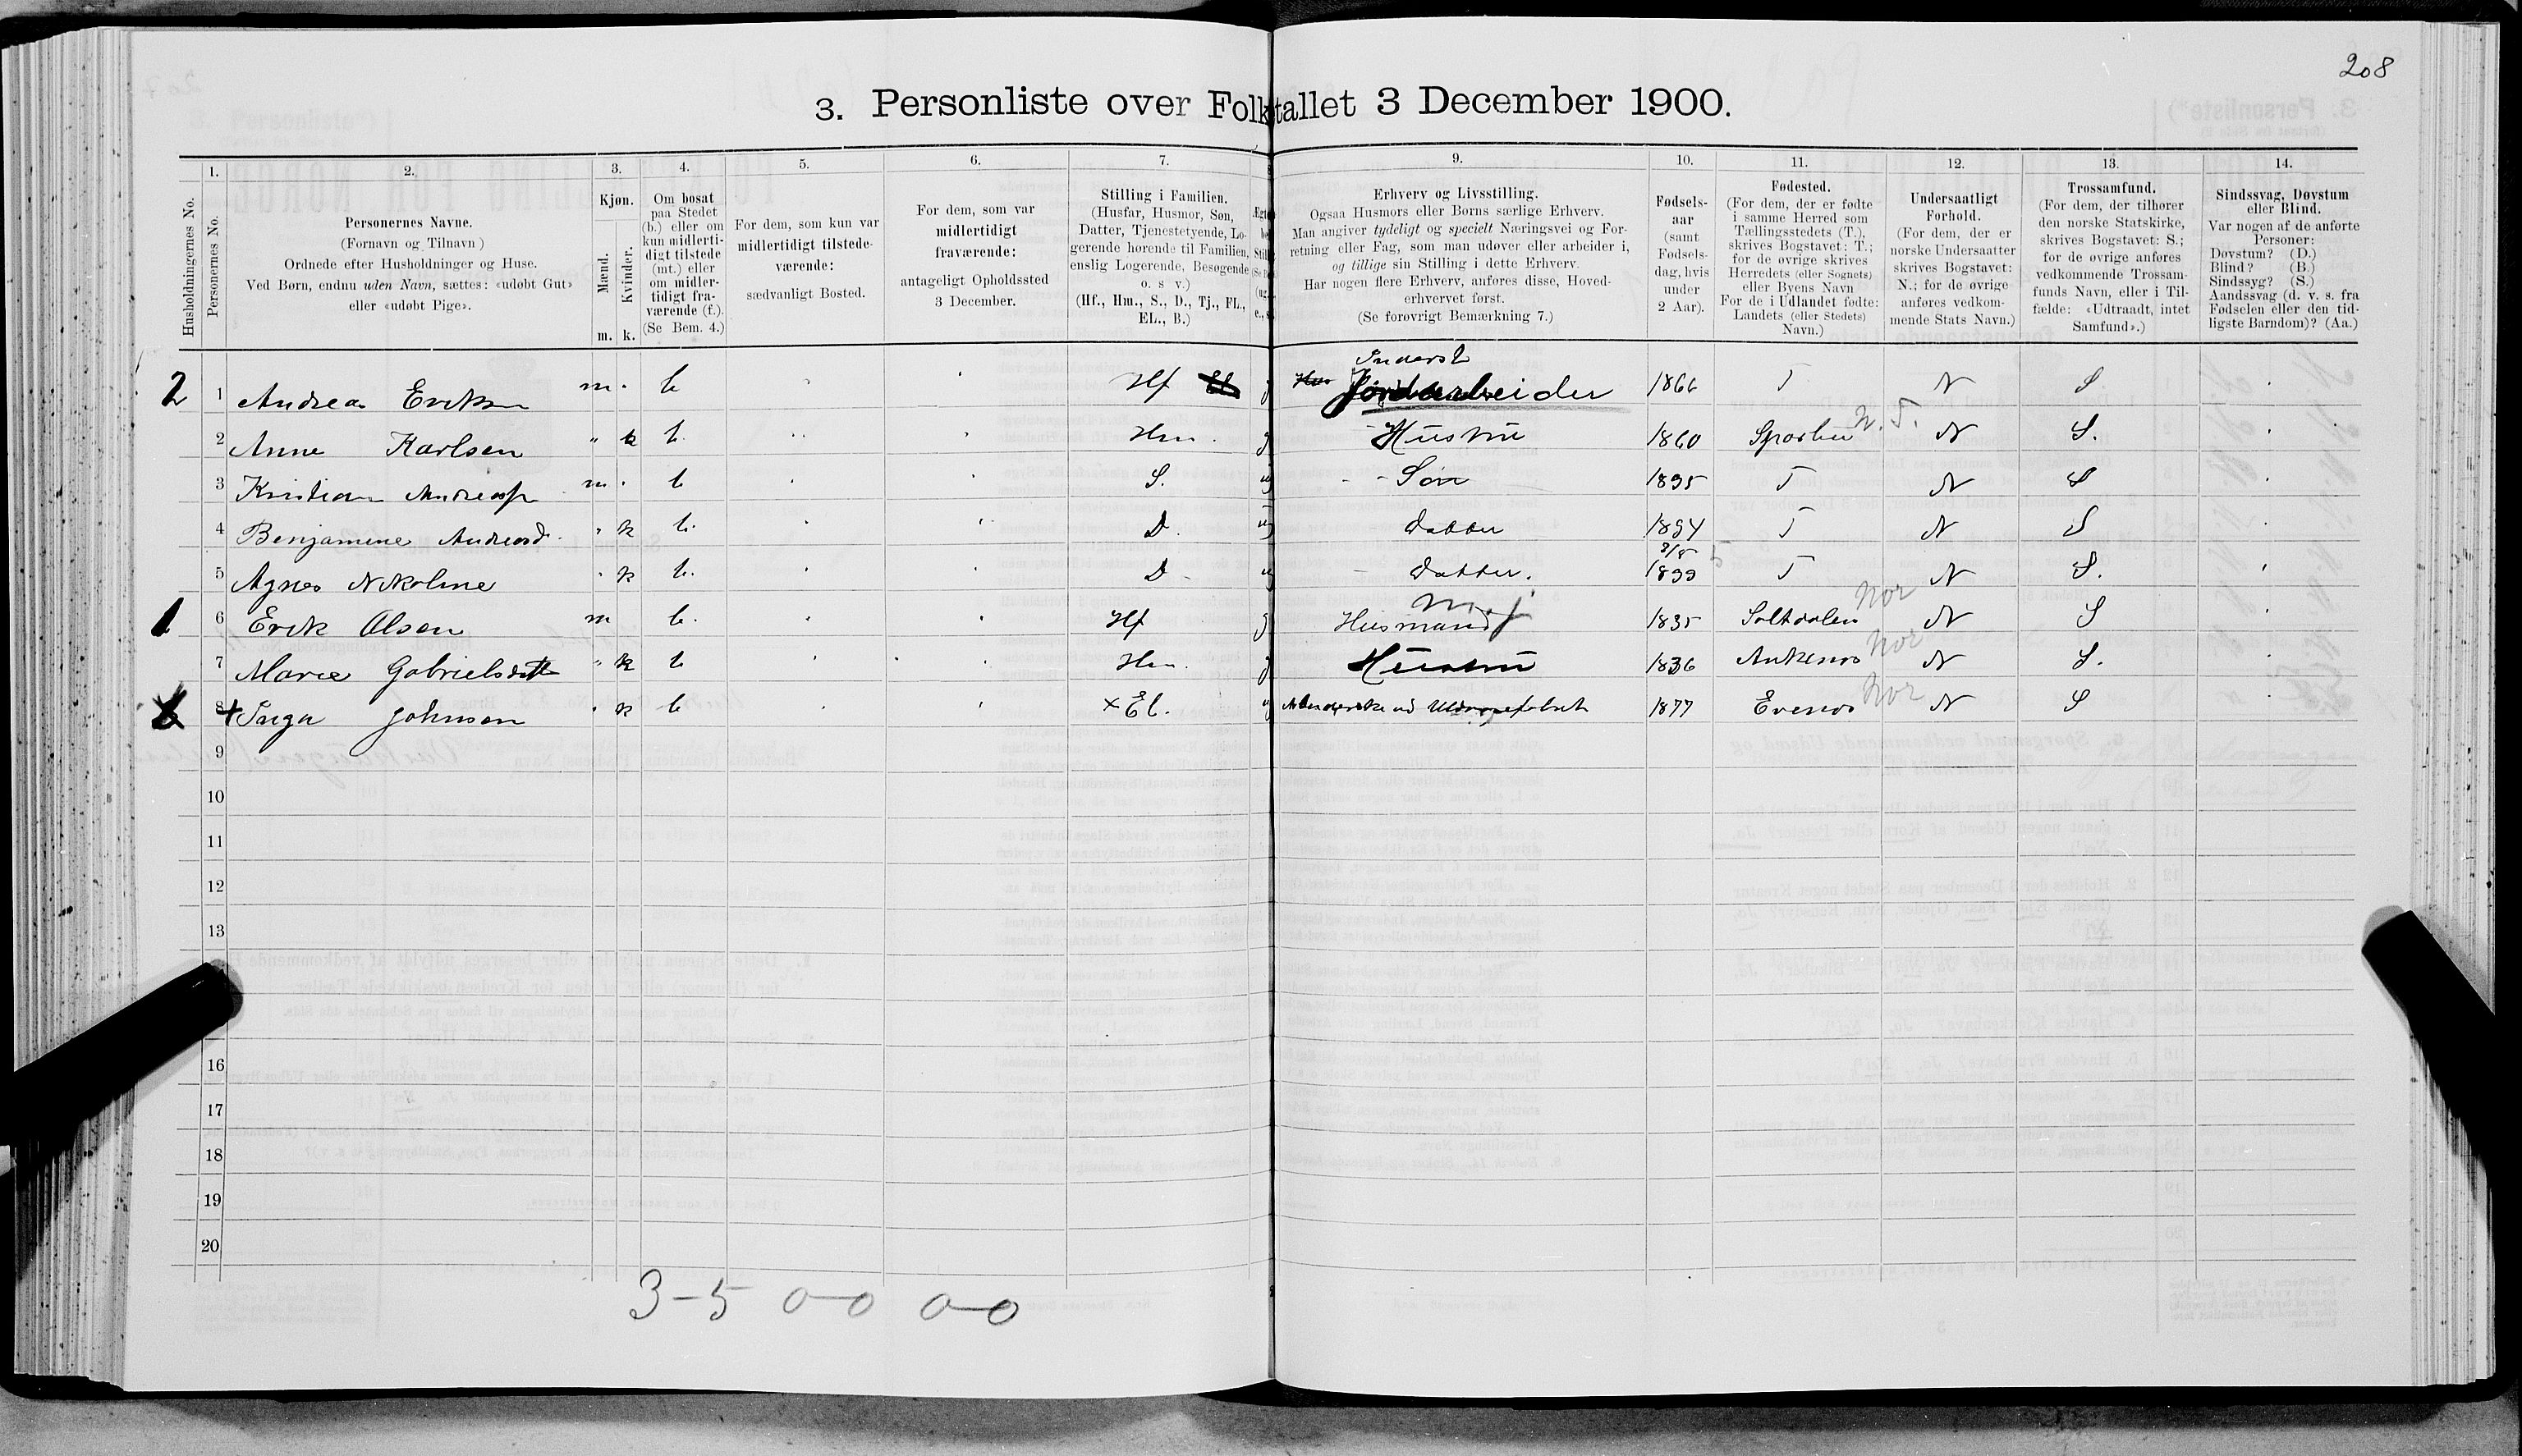 208
3. Personliste over Folketallet 3 December 1900.
1. 2. 3. 4. 5. 6. 7. 9. 10. 11. 12. 13. 14.
Husholdningernes No.
Personernes No.
Personernes Navne.
(Fornavn og Tilnavn)
Ordnede efter Husholdninger og Huse.
Ved Børn, endnu uden Navn, sættes: «udøbt Gut»
eller «udøbt Pige».
Kjøn.
Mænd.
Kvinder.
m. k.
Om bosat
paa Stedet
(b.) eller om
kun midlerti-
digt tilstede
(mt.) eller
om midler-
tidigt fra-
værende (f.).
(Se Bem. 4.)
For dem, som kun var
midlertidigt tilstede-
værende:
sædvanligt Bosted.
For dem, som var
midlertidigt
fraværende:
antageligt Opholdssted
3 December.
Stilling i Familien.
(Husfar, Husmor, Søn,
Datter, Tjenestetyende, Lo-
gerende hørende til Familien,
enslig Logerende, Besøgende
o. s v.)
(Hf., Hm., S., D., Tj., FL.,
EL., B.)
Erhverv og Livsstilling.
Ogsaa Husmors eller Børns særlige Erhverv.
Man angiver tydeligt og specielt Næringsvei og For-
retning eller Fag, som man udøver eller arbeider i,
og tillige sin Stilling i dette Erhverv.
Har nogen flere Erhverv, anføres disse, Hoved-
erhvervet først.
(Se forøvrigt Bemærkning 7.)
Fødsels-
aar
(samt
Fødsels-
dag, hvis
under
2 Aar).
Fødested.
(For dem, der er fødte
i samme Herred som
Tællingsstedets (T.),
skrives Bogstavet: T.;
for de øvrige skrives
Herredets (eller Sognets)
eller Byens Navn
For de i Udlandet fødte:
Landets (eller Stedets)
Navn.)
Undersaatligt
Forhold.
(For dem, der er
norske Undersaatter
skrives Bogstavet:
N.; for de øvrige
anføres vedkom-
mende Stats Navn.)
Trossamfund.
(For dem, der tilhører
den norske Statskirke,
skrives Bogstavet: S.;
for de øvrige anføres
vedkommende Trossam-
funds Navn, eller i Til-
fælde: «Udtraadt, intet
Samfund».)
Sindssvag, Døvstum
eller Blind.
Var nogen af de anførte
Personer:
Døvstum? (D.)
Blind? (B.)
Sindssyg? (S.)
Aandssvag (d. v. s. fra
Fødselen eller den tid-
ligste Barndom)? (Aa.)
Inderst
2 1 Andreas Eriksen m. b Hf g Jordarbeider 1866 T N S
2 Anne Karlsen " k b. Hm. g Hustru 1860 Sparbu N.T. N S.
3 Kristian Andreas m. b S. ug Søn 1895 T N S
4 Benjamine Andreasd. k b. D. ug datter 1894 T N S
5 Agnes Nikoline k b. D ug datter. 1899 T N S.
1 6 Erik Olsen m b. Hf g Husmand 1835 Saltdalen Nor N S
7 Marie Gabrielsdatter " k b Hm. g Hustru 1836 Ankenes Nor N S.
8 Inga Johnsen k b × El. ug 1877 Evenes Nor N S
9
10
11
12
13
16
17
18
19
20
3-5 0-0 0-0